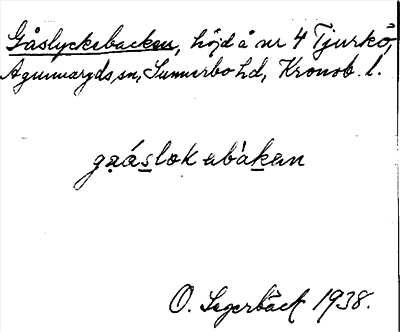 Gåslyckebacken, höjd å nr 4 Tjurkö,
Agunnaryds sn, Sunnerbo hd, Kronob. l.
gaáslokabàkan
O. Segerbäck 1938.